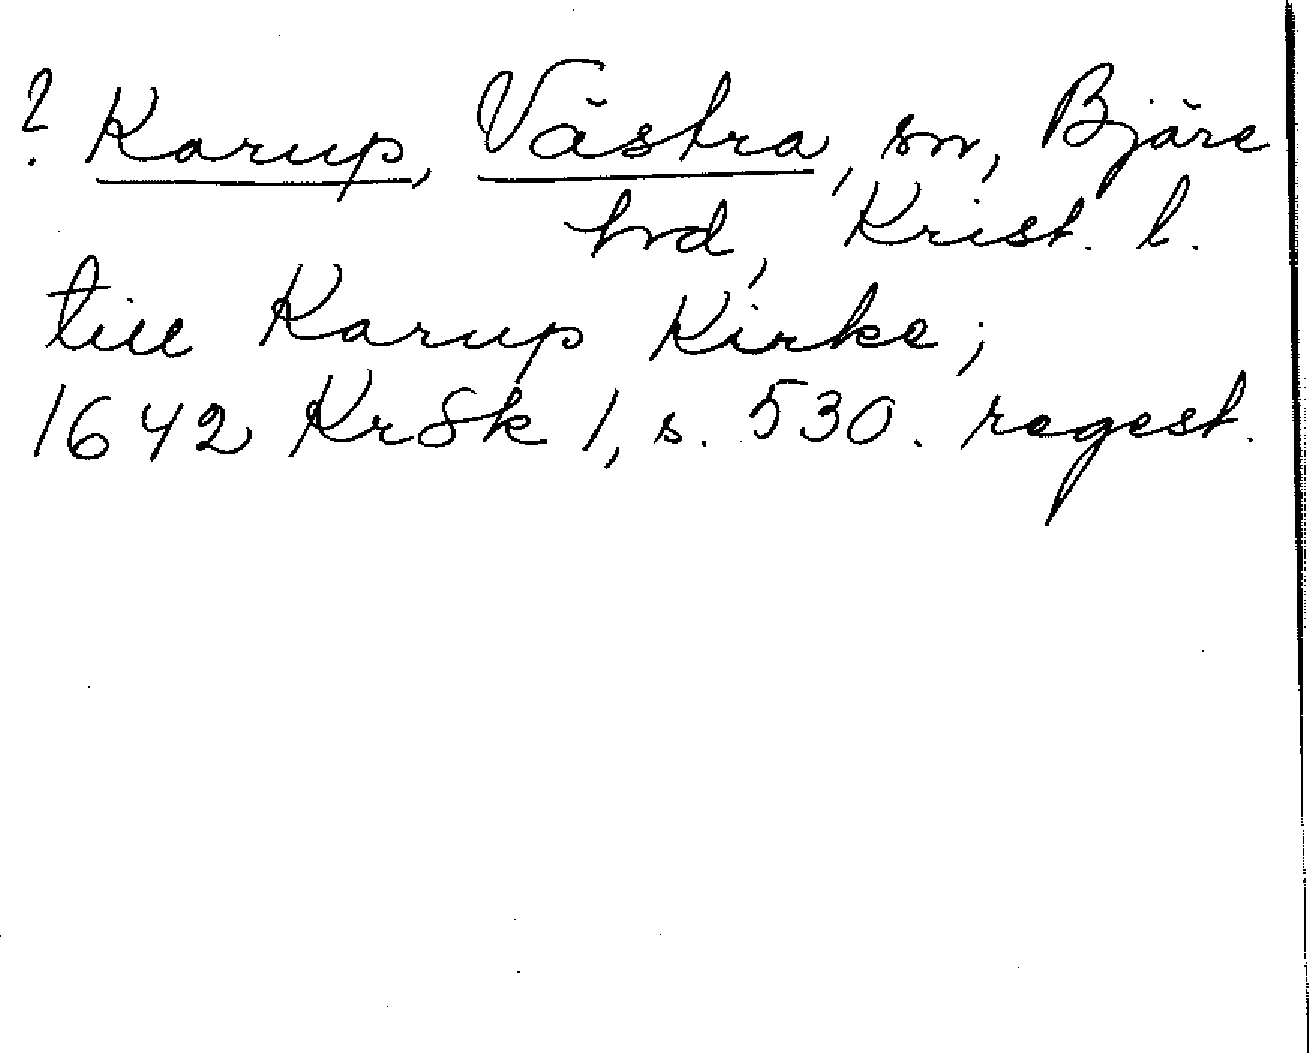 ? Karup, Västra, sn, Bjäre
hrd, Krist. l.
till Karup Kirke;
1642 KrSk 1, s. 530. regest.